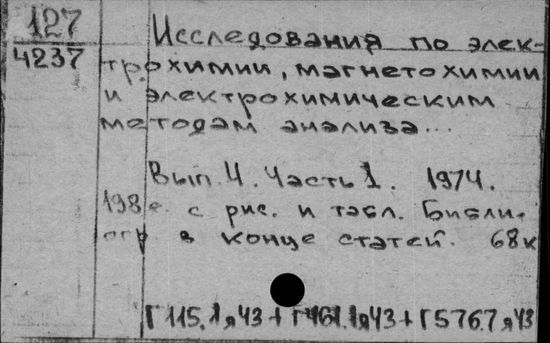 127
4237
Исследования по элек-
трохимии, магнетохимии
и электрохимическим
методам анализа...
Вып. 4. Часть 1. 1974.
198 с. с рис. и табл. Библи-
огр. в конце статей. 68к
Г115.1я43 + Г461.1я43 + Г576.7я43